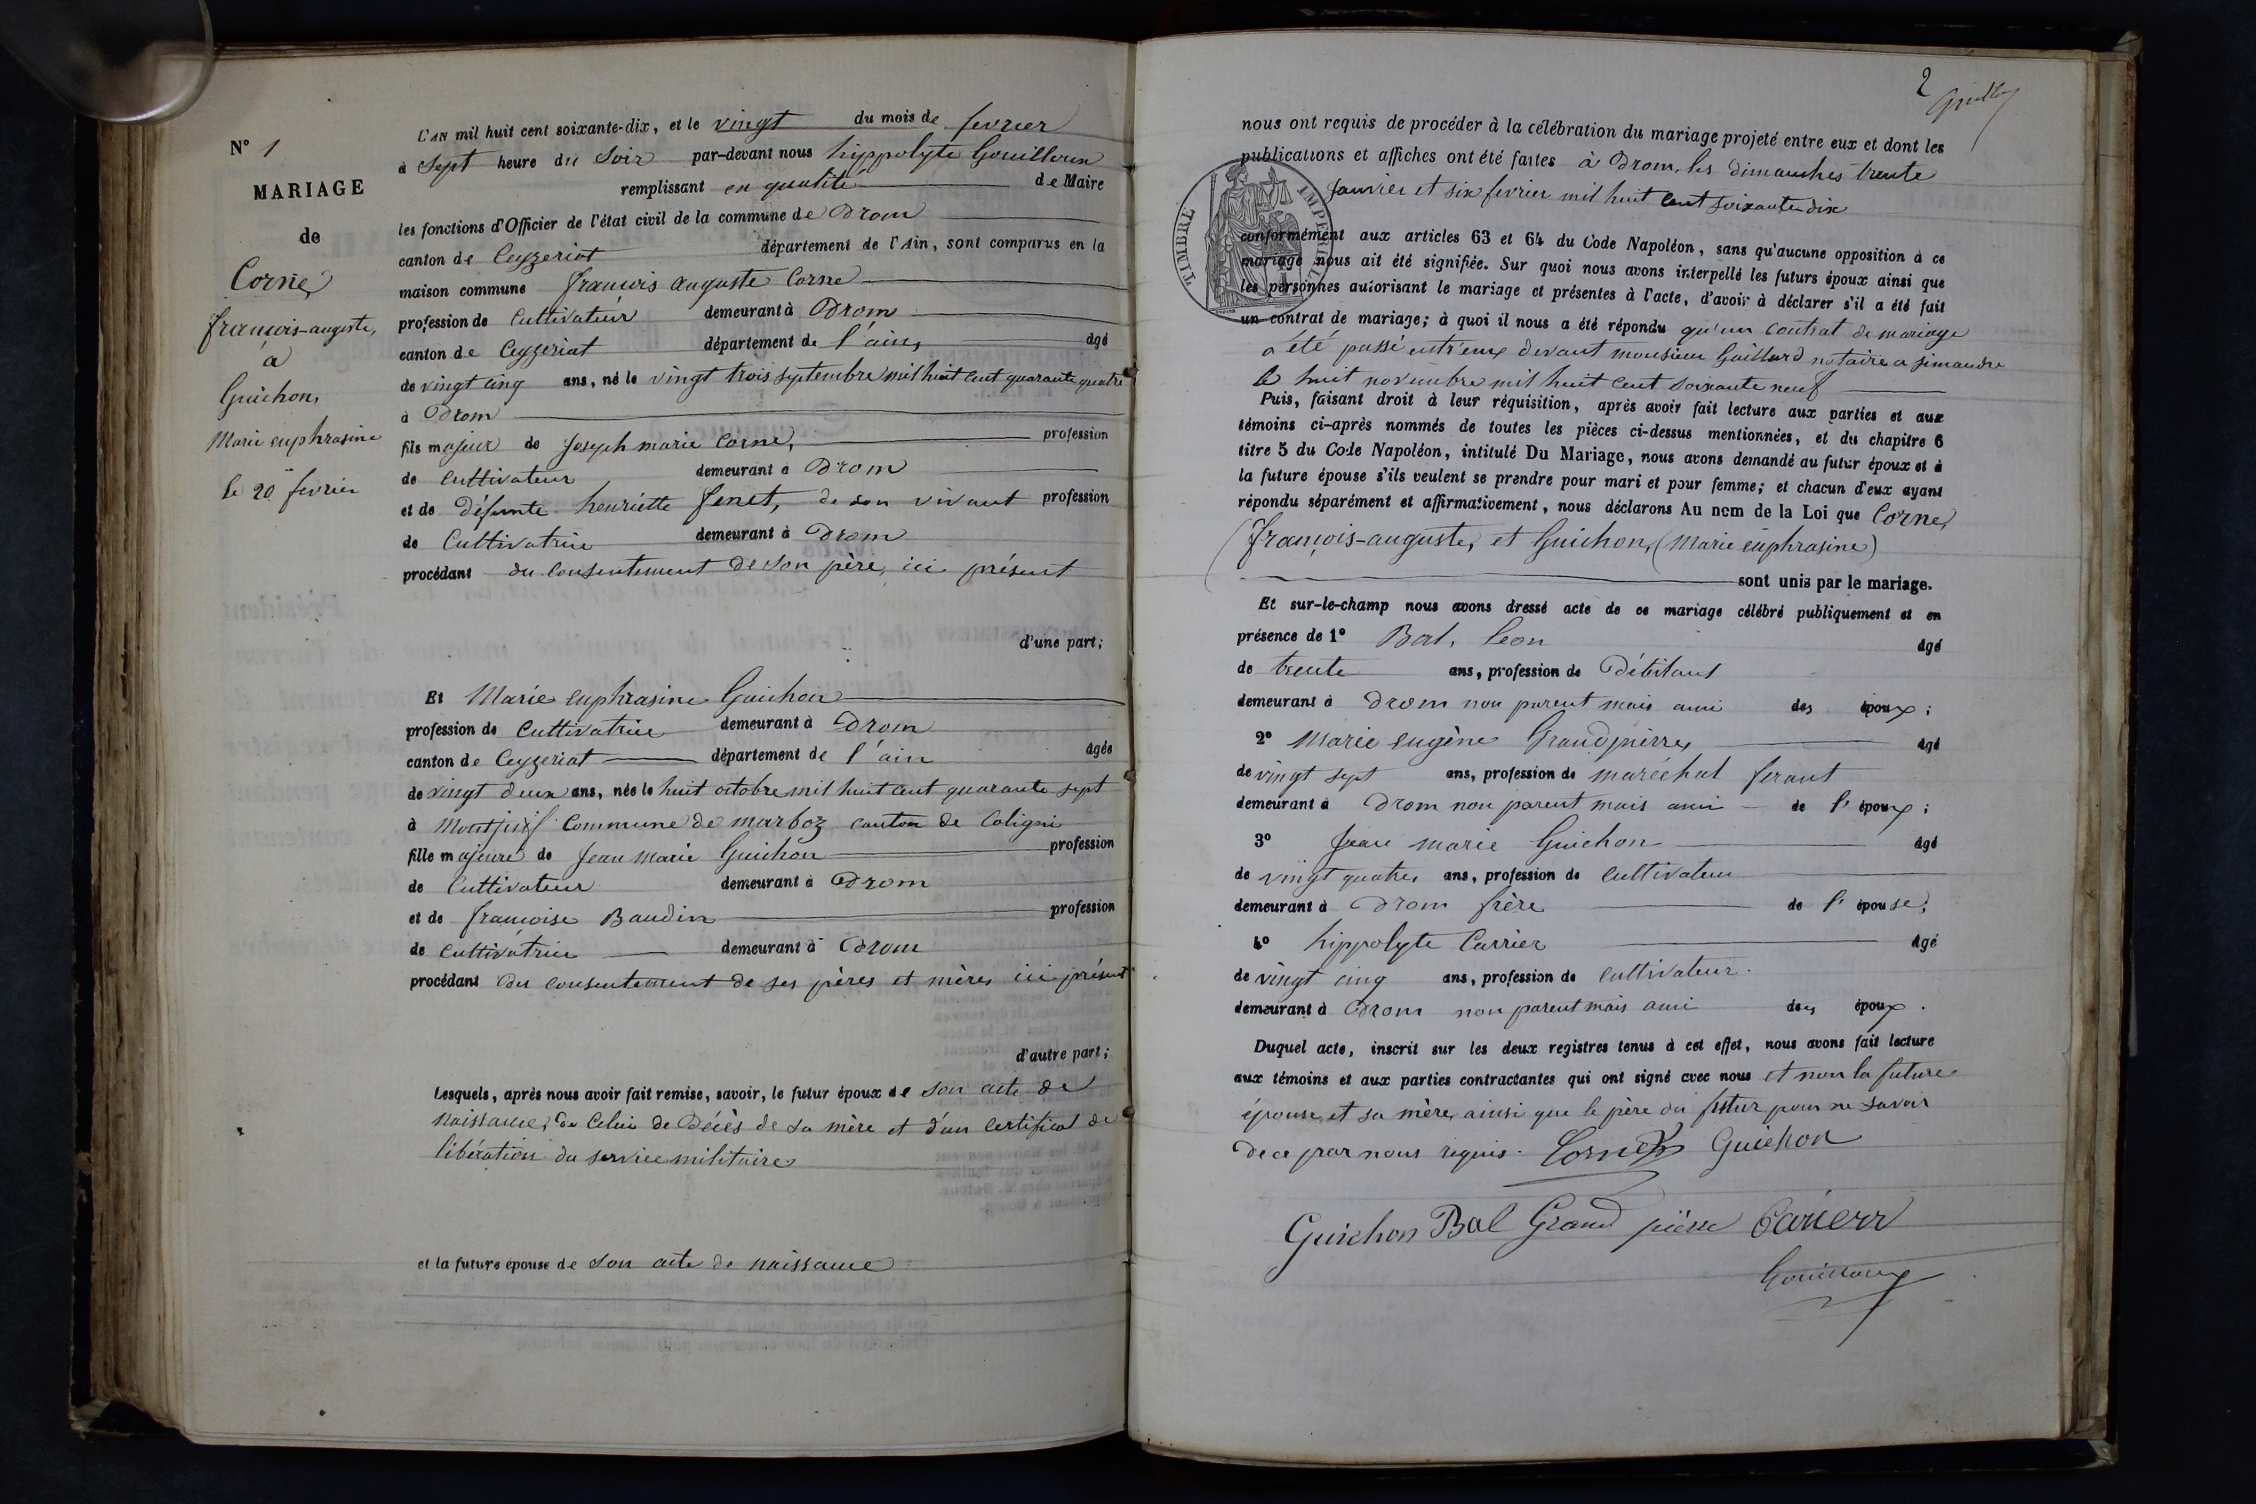 N° 1
MARIAGE
de
Corne,
françois-auguste,
à
Guichon,
Marie euphrasine
le 20 fevrier
L'AN mil huit cent soixante-dix, et le vingt du mois de fevrier
à sept heure du soir par-devant nous hippolyte Gouilloux
remplissant en qualité de Maire
les fonctions d'Officier de l'état civil de la commune de Drom
canton de Ceyzeriat département de l'Ain, sont comparus en la
maison commune françois auguste Corne
profession de Cultivateur demeurant à Drom
canton de Ceyzeriat département de l'ain, âgé
de vingt cinq ans, né le vingt trois septembre mil huit cent quarante quatre
à Drom
fils majeur de Joseph marie Corne, profession
de cultivateur demeurant à Drom
et de défunte henriette fenet, de son vivant profession
de Cultivatrice demeurant à Drom
procédant du consentement de son père, ici présent
d'une part;
Et Marie euphrasine Guichon
profession de Cultivatrice demeurant à Drom
canton de Ceyzeriat département de l'ain âgée
de vingt deux ans, née le huit octobre mil huit cent quarante sept
à Montjuif Commune de marboz canton de Coligni
fille majeure de Jean marie Guichon profession
de Cultivateur demeurant à Drom
et de françoise Baudin profession
de cultivatrice demeurant à Drom
procédant du consentement de ses pères et mères ici présent
d'autre part;
Lesquels, après nous avoir fait remise, savoir, le futur époux de son acte de
naissance, de Celui de Décès de sa mère et d'un certificat de
libération du service militaire
et la future épouse de son acte de naissance
2
nous ont requis de procéder à la célébration du mariage projeté entre eux et dont les
publications et affiches ont été faites à Drom, les dimanches trente
Janvier et six fevrier mil huit cent soixante dix
TIMBRE IMPERIAL
conformément aux articles 63 et 64 du Code Napoléon, sans qu'aucune opposition à ce
mariage nous ait été signifiée. Sur quoi nous avons interpellé les futurs époux ainsi que
les personnes autorisant le mariage et présentes à l'acte, d'avoir à déclarer s'il a été fait
un contrat de mariage; à quoi il nous a été répondu qu'un contrat de mariage
a été passé entr'eux devant monsieur Gaillard notaire a simandre
le huit novembre mil huit cent soixante neuf
Puis, faisant droit à leur réquisition, après avoir fait lecture aux parties et aux
témoins ci-après nommés de toutes les pièces ci-dessus mentionnées, et du chapitre 6
titre 5 du Code Napoléon, intitulé Du Mariage, nous avons demandé au futur époux et à
la future épouse s'ils veulent se prendre pour mari et pour femme; et chacun d'eux ayant
répondu séparément et affirmativement, nous déclarons Au nom de la Loi que Corne,
(françois-auguste, et Guichon, (Marie euphrasine)
sont unis par le mariage.
Et sur-le-champ nous avons dressé acte de ce mariage célébré publiquement et en
présence de 1° Bal, leon âgé
de trente ans, profession de Débitant
demeurant à Drom non parent mais ami des époux;
2° Marie eugène Grandpierre, âgé
de vingt sept ans, profession de maréchal ferant
demeurant à Drom non parent mais ami de l'époux;
3° Jean marie Guichon âgé
de vingt quatre, ans, profession de cultivateur
demeurant à Drom frère de l'épouse;
4° hippolyte Carrier âgé
de vingt cinq ans, profession de cultivateur.
demeurant à Drom non parent mais ami des époux.
Duquel acte, inscrit sur les deux registres tenus à cet effet, nous avons fait lecture
aux témoins et aux parties contractantes qui ont signé avec nous et non la future
épouse, et sa mère, ainsi que le père du futur pour ne savoir
de ce par nous requis. Corne Guichon
Guichon Bal Grand pierre
Gouilloux